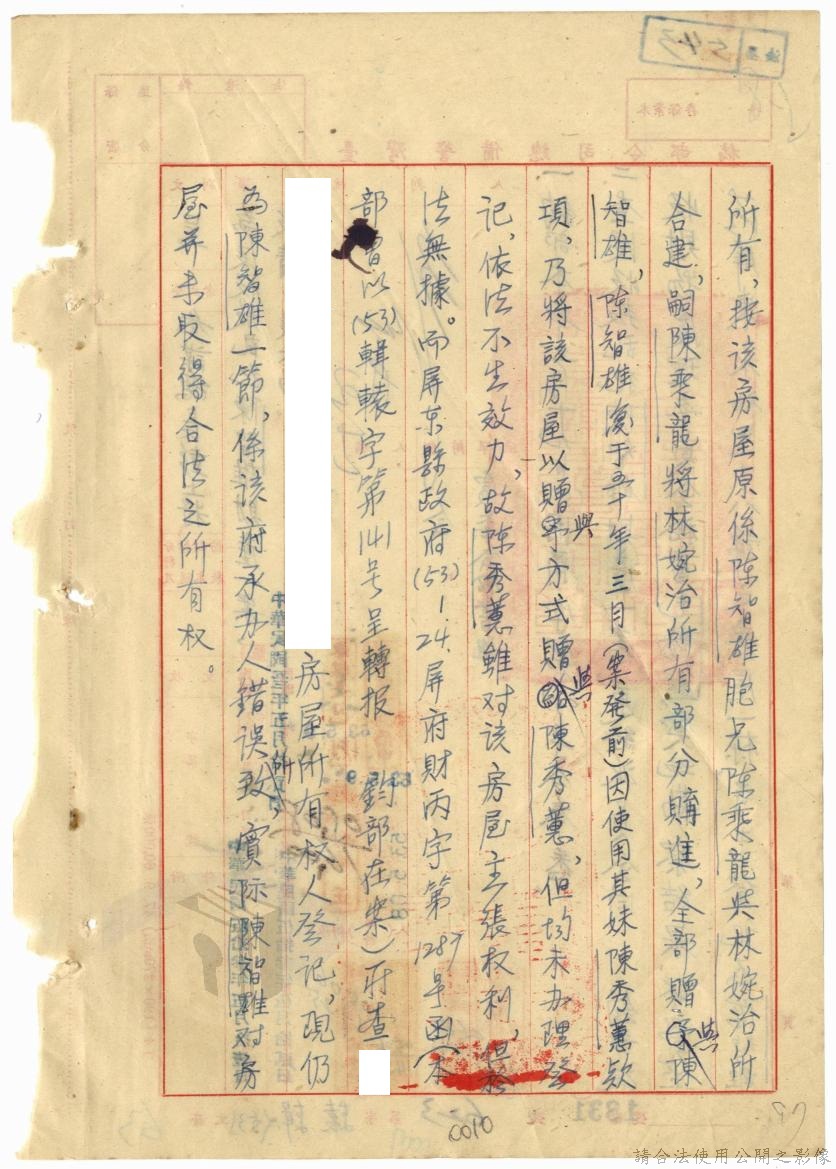 所有，按该房屋原係陳智雄胞兄陳乘龍與林婉治所
合建，嗣陳乘龍將林婉治所有部分購進，全部贈與陳
智雄，陳智雄復于五十年三月（案發前）因使用其妹陳秀蕙款
項，乃將該房屋以贈與方式贈與陳秀蕙，但均未办理登
记，依法不生效力，故陳秀蕙雖对该房屋主張权利，但於
法無據。而屏东縣政府(53)1.24.屏府財丙字第1287号函（本
部曾以(53)輯轅字第141号呈轉报　鈞部在案）所查
房屋所有权人登记，現仍
為陳智雄一節，係该府承办人錯误所致，實际陳智雄对房
屋并未取得合法之所有权。
0010
請合法使用公開之影像